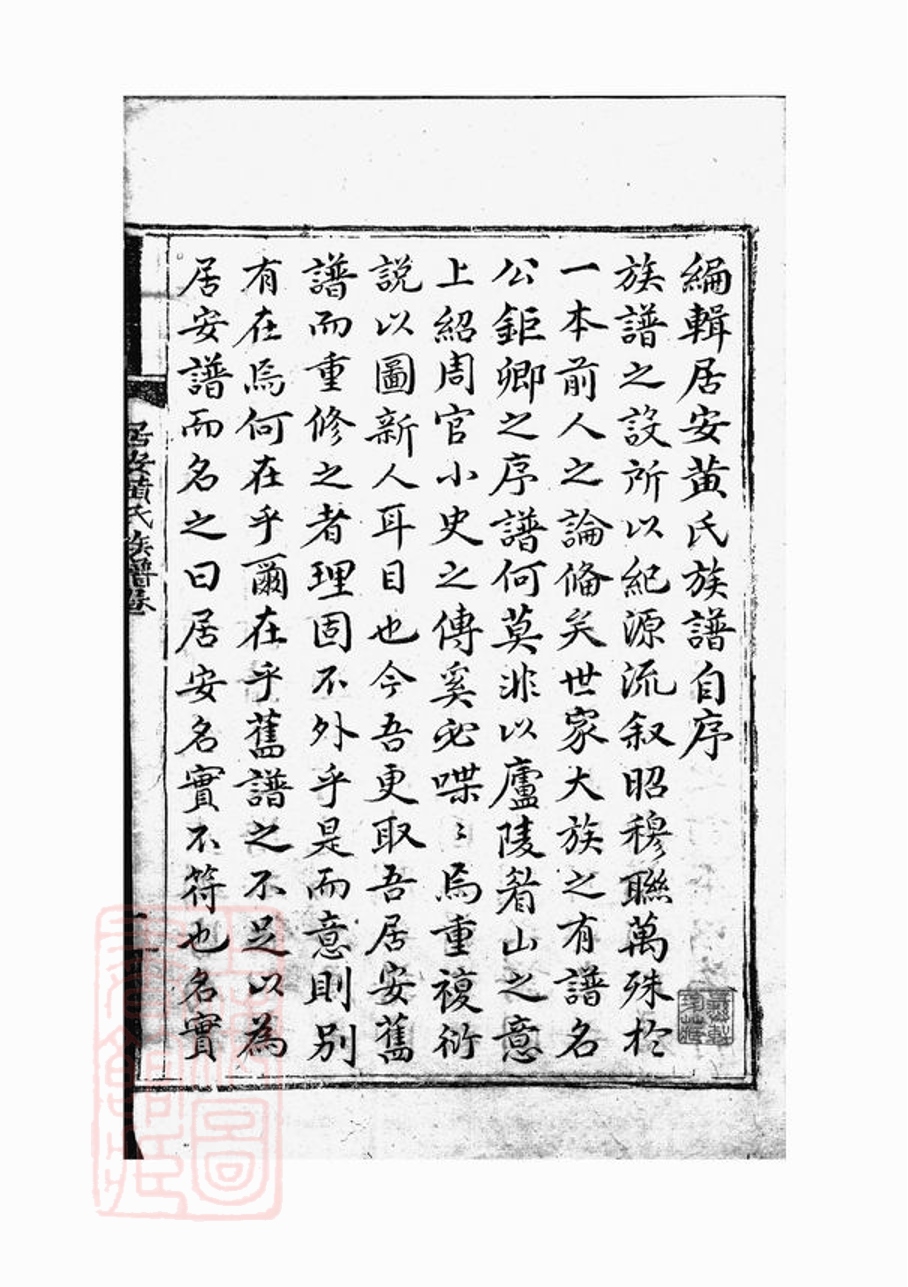 編輯居安黄氏族譜自序
族譜之設所以紀源流叙昭穆聯萬殊於
一本前人之論俻矣世家大族之有譜名
公鉅卿之序譜何莫非以廬陵眷山之意
上紹周官小史之傳奚必喋〻焉重複衍
說以圖新人耳目也今吾更取吾居安舊
譜而重修之者理固不外乎是而意則别
有在焉何在乎爾在乎舊譜之不足以為
居安譜而名之曰居安名實不符也名實
居安黄氏族譜卷